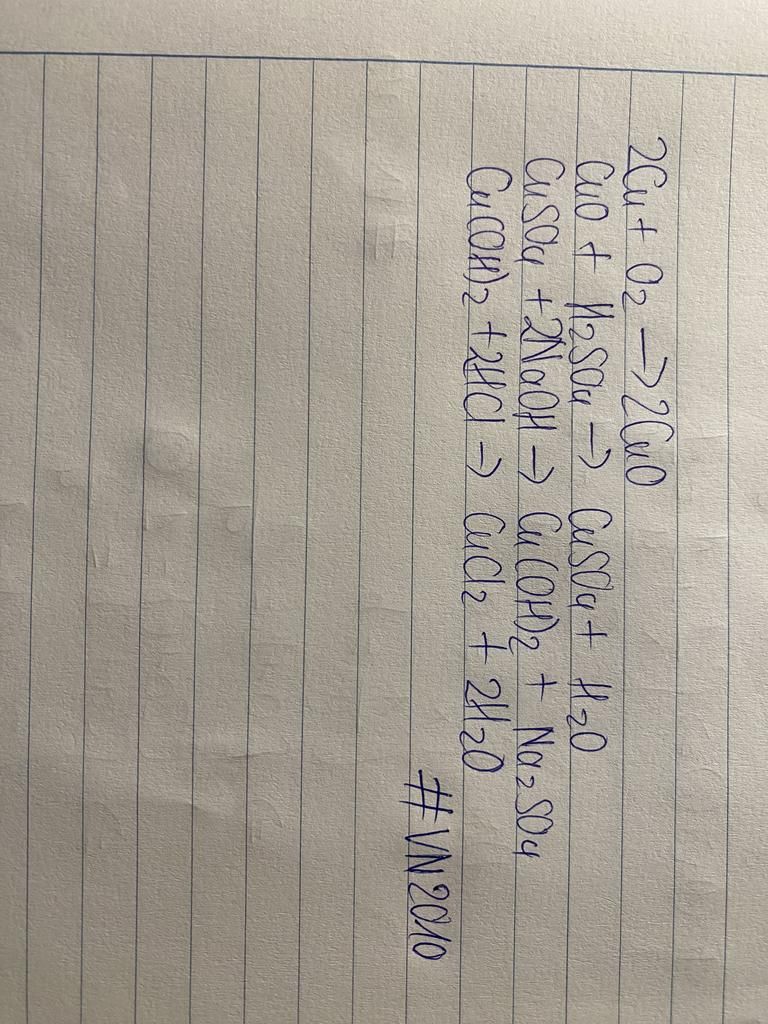 2Cu + O2 → 2CuO
CuO + H2SO4 → CuSO4 + H2O
CuSO4 + 2NaOH → Cu(OH)2 + Na2SO4
Cu(OH)2 + 2HCl → CuCl2 + 2H2O
#VN2010